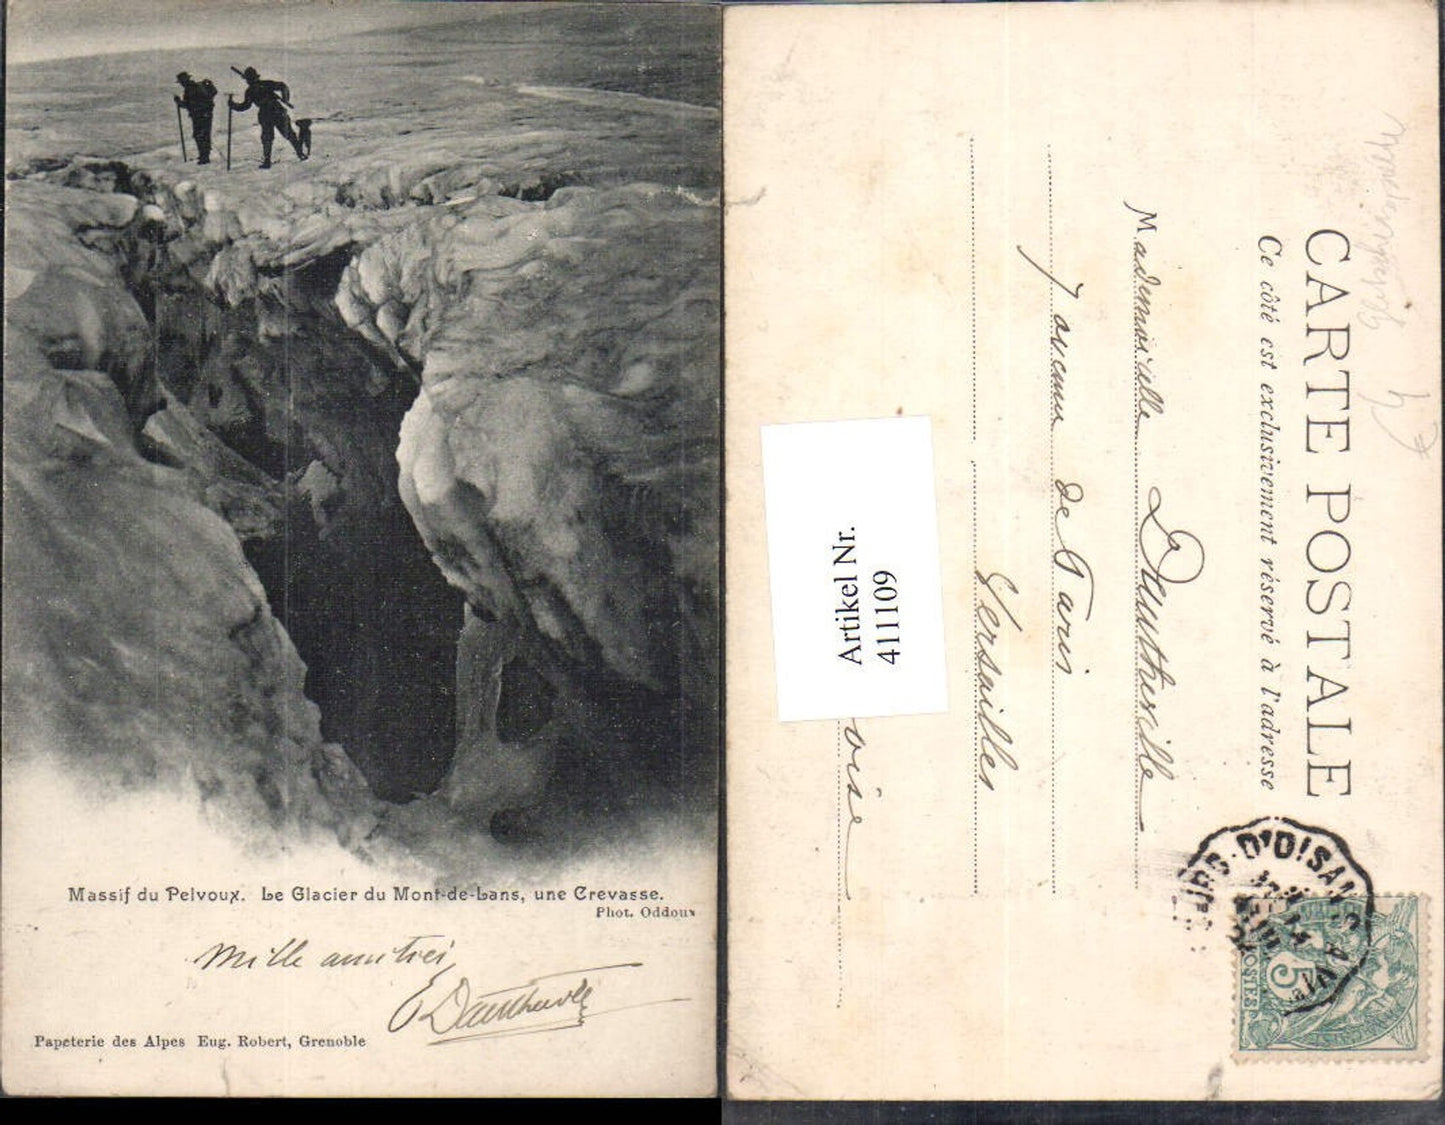 Massif du Pelvoux. Le Glacier du Mont-de-Lans, une Crevasse.
Phot. Oddoux
Mille amitiés
E Dautheville
Papeterie des Alpes Eug. Robert, Grenoble
CARTE POSTALE
Ce côté est exclusivement réservé à l'adresse
Mademoiselle Dautheville
7 avenue de Paris
Versailles
oise
Artikel Nr.
4111109
BOURG-D'OISANS
5
POSTES